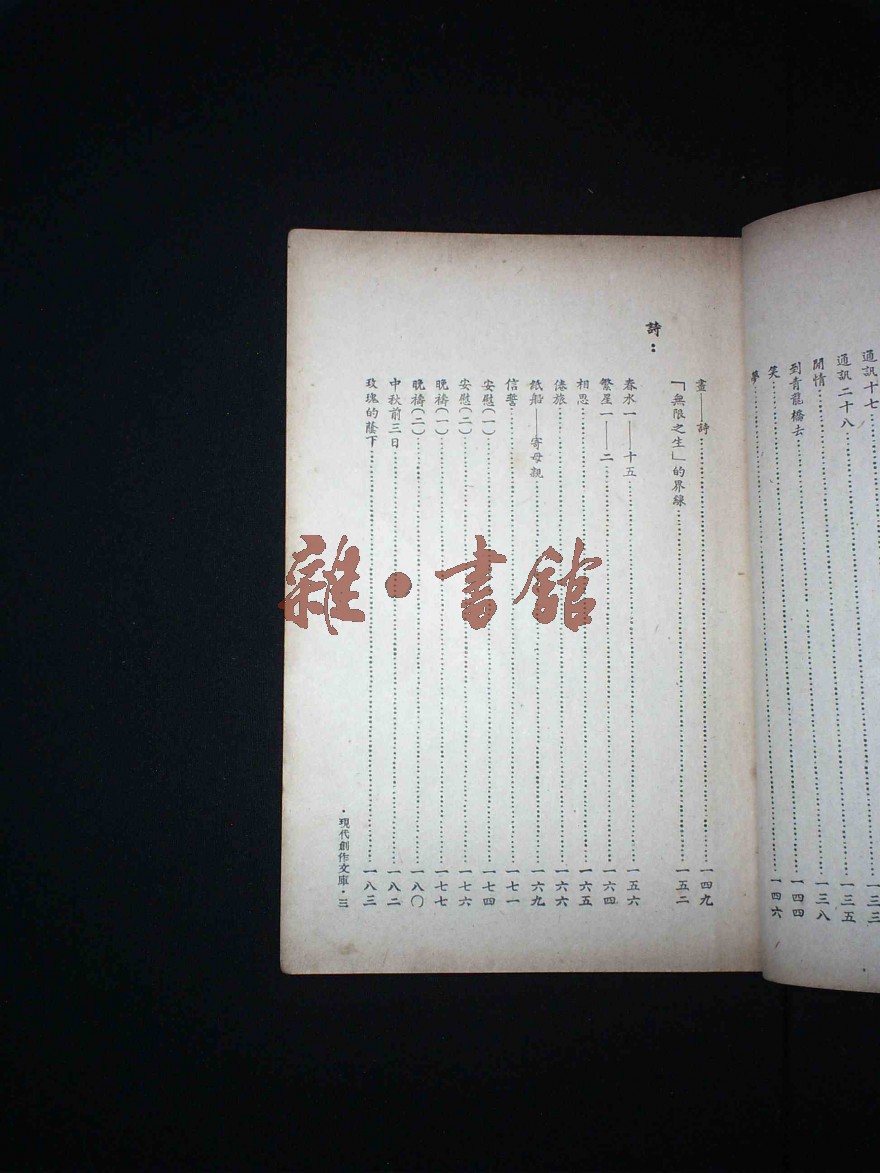 通訊十七……一三三
通訊二十八……一三五
閒情……一三八
到青龍橋去……一四四
笑……一四六
夢……
畫——詩……一四九
「無限之生」的界線……一五二
詩：
春水一——十五……一五六
繁星一——二……一六四
相思……一六五
倦旅……一六六
紙船——寄母親……一六九
信誓……一七一
安慰(一)……一七四
安慰(二)……一七六
晚禱(一)……一七七
晚禱(二)……一八〇
中秋前三日……一八二
玫瑰的蔭下……一八三
·現代創作文庫·三
雜·書館